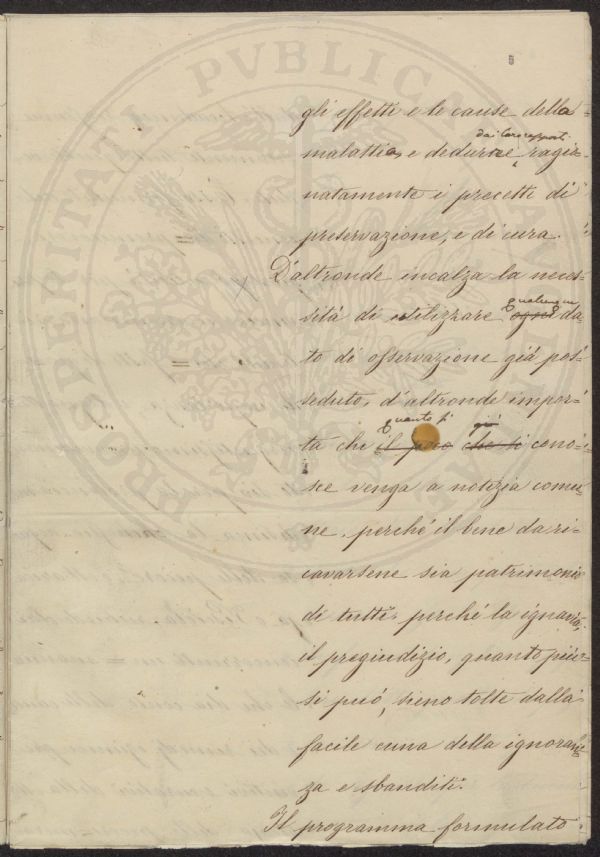 5
gli effetti e le cause della
malattia, e dedurne dai loro rapporti ragio-
natamente i precetti di
preservazione, e di cura.
D'altronde incalza la neces-
sità di utilizzare ogni qualunque da-
to di osservazione già pos-
seduto, d'altronde impor-
ta che il poco che si quanto si già cono-
sce venga a notizia comu-
ne, perché il bene da ri-
cavarsene sia patrimonio
di tutti, perché la ignavia,
il pregiudizio, quanto più
si può, sieno tolte dalla
facile cuna della ignoran-
za e sbanditi.
Il programma formulato
PROSPERITATI PUBLICAE